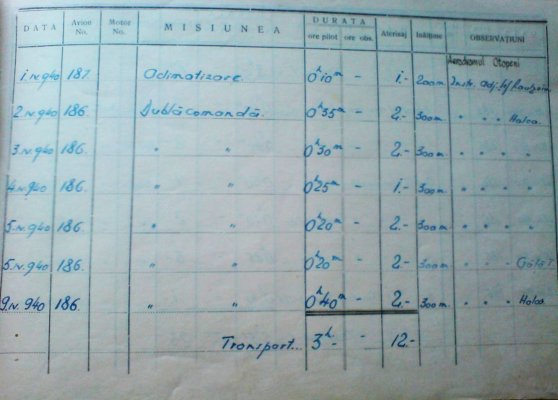 DATA Avion No. Motor No. MISIUNEA DURATA ore pilot ore obs. Aterisaj Inălțime OBSERVAȚIUNI
Aerodromul Otopeni
1.IV.940 187. Aclimatizare. 0h10m - 1.- 200m. Instr. Adj. Șef
2.IV.940 186. Dublăcomandă. 0h35m - 2.- 300m. " " Halca.
3.IV.940 186. " " 0h30m - 2.- 300m. " " " "
4.IV.940 186. " " 0h25m - 1.- 300m. " " " "
5.IV.940 186. " " 0h20m - 2.- 300m. " " " "
5.IV.940 186. " " 0h20m - 2.- 300m. " " "
9.IV.940 186. " " 0h40m - 2.- 300m. " " Halca.
Transport... 3h.- - 12.-